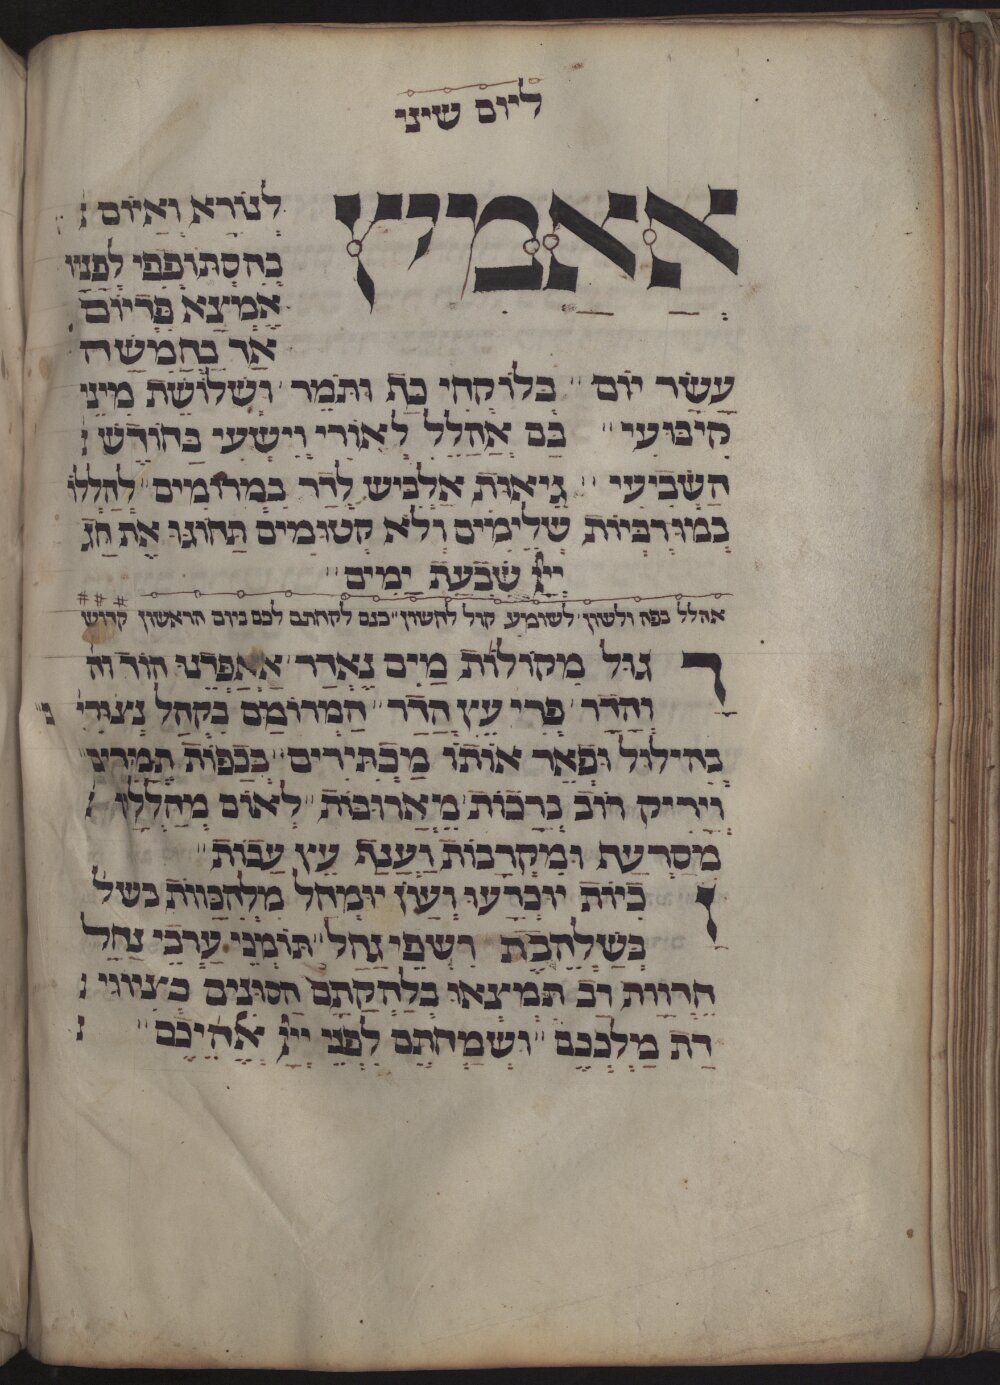 ליום שיני
אאמיץ לנורא ואיום
בהסתופפי לפניו
אמצא פדיום
אך בחמשה
עשר יום בלוקחי כת ותמר ושלושת מיני
קיבועי בם אהלל לאורי וישעי בחודש
השביעי גיאות אלביש לדר במרומים להללו
במורביות שלימים ולא קטומים תחוגו את חג
ייי שבעת ימים
אהלל בפה ולשון לשומע קול לחשון ככת לקחתם לכם ביום הראשון קדוש
ד גול מקולות מים נאדר אאפדנו הוד
והדר פרי עץ הדר המרומם בקהל נצורי
בהילול ופאר אותו מכתירים בכפות תמרים
ויריק רוב ברכות מארובות לאום מהללו
מסרעת ומקרבות וענף עץ עבות
זביות יוכרעו ועון יומחל מלהכוות בשל
כשלהבת רשפי גחל תומני ערבי נחל
הרוות רב תמצאו בלהקתם הסוגים כציווי
דת מלככם ושמחתם לפני ייי אלהיכם